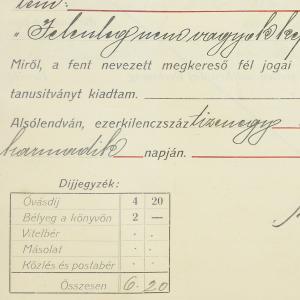 "Jelenleg nem vagyok
Miről, a fent nevezett megkereső fél jogai
tanusitványt kiadtam.
Alsólendván, ezerkilenczszáz tizenegy
harmadik napján.
Díjjegyzék:
Óvásdíj 4 20
Bélyeg a könyvön 2 —
Vitelbér . .
Másolat . .
Közlés és postabér . .
Összesen 6. 20